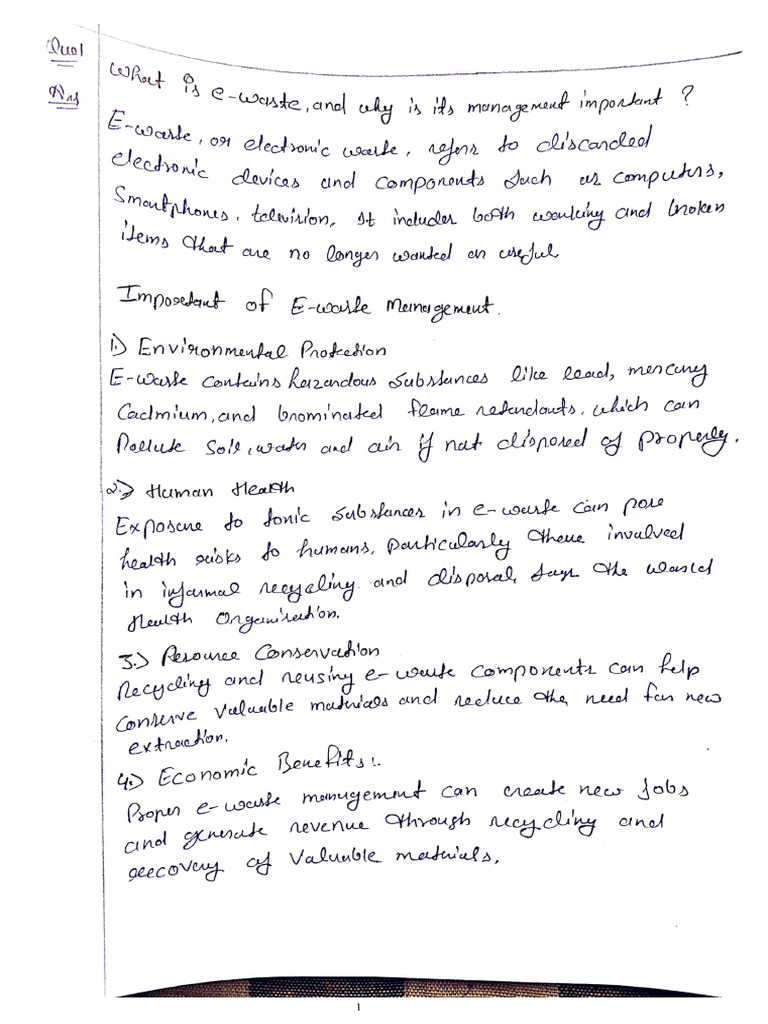 Que1
What is e-waste, and why is its management important ?
Ans
E-waste, or electronic waste, refers to discarded
electronic devices and components such as computers,
Smartphones, television, It includes both working and broken
items that are no longer wanted or useful.
Imporetant of E-waste Management.
1.) Environmental Protection
E-waste contains hazardous substances like lead, mercury
Cadmium, and brominated flame retardants, which can
Pollute soil, water and air if not disposed of properly.
2.) Human Health
Exposure to tonic substances in e-waste can pose
health risks to humans, particularly those involved
in informal recycling and disposal, says the world
Health Organisation.
3.) Resource Conservation
Recycling and reusing e-waste components can help
conserve valuable materials and reduce the need for new
extraction.
4.) Economic Benefits:.
Proper e-waste management can create new jobs
and generate revenue through recycling and
recovery of valuable materials.
1